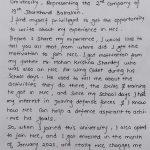 University, Representing the 2nd company of
3rd Jharkhand Battalion.
I find myself privileged to get the opportunity
to write about my experience in NCC.
Before I share my experience I would like to
tell you all that from where did I get the
motivation to join NCC. I got motivation from
my father Mr. Mohan Krishna Pandey who
was also an NCC Air wing cadet during his
School days. He used to tell me about the
activities they do there, the skills & training
he got in NCC and since my School days I had
my interest in joining defence forces & I know
how NCC can help a defence aspirant to achi-
eve his goals.
So, when I joined this university, I also opted
to join NCC, and I got enrolled in the month
of January 2021, and really NCC changes me